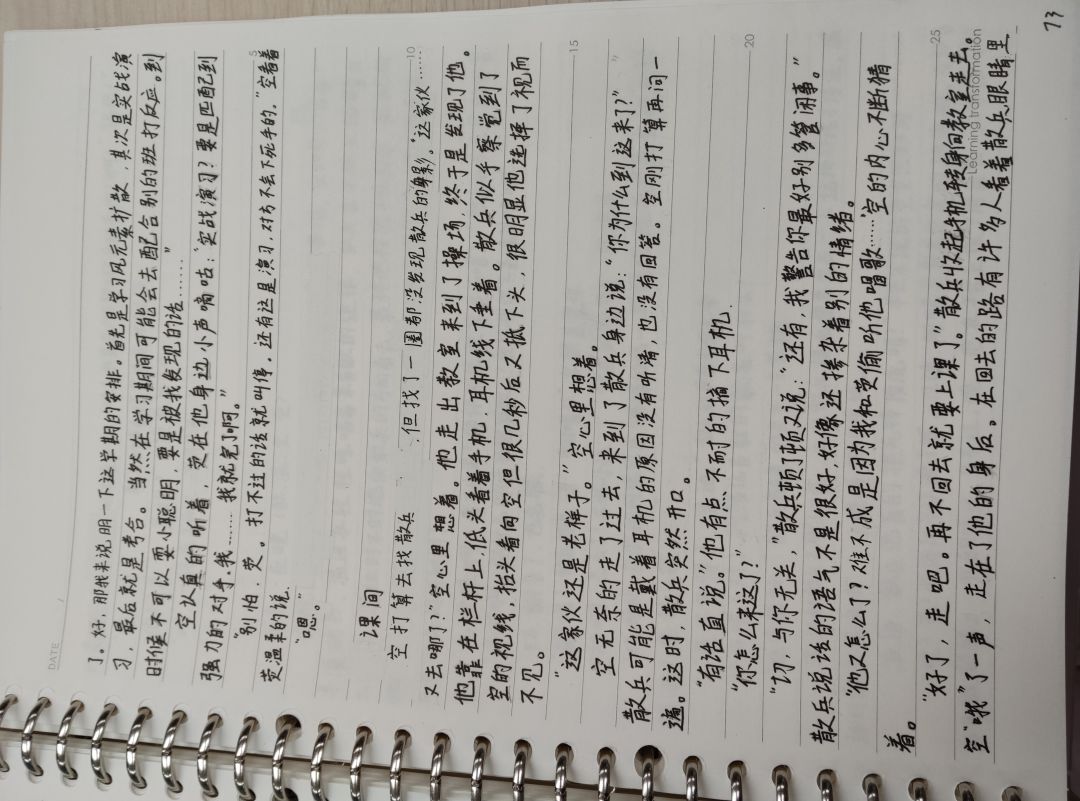 DATE
了。好，那我来说明一下这学期的安排。首先是学习风元素扩散，其次是实战演
习，最后就是考合。当然在学习期间可能会去配合别的班打反应。到
时候不可以耍小聪明，要是被我发现的话……”
空认真的听着，荧在他身边小声嘀咕：“实战演习？要是匹配到
强力的对手，我……我就完了啊。”
“别怕，荧。打不过的话就叫停。还有这是演习，对方不会下死手的，”空看着
荧温柔的说。
“嗯。”
课间
空打算去找散兵，但找了一圈都没发现散兵的身影。“这家伙……
又去哪了？”空心里想着。他走出教室来到了操场，终于是发现了他。
他靠在栏杆上，低头看着手机，耳机线下垂着。散兵似乎察觉到了
空的视线，抬头看向空但很几秒后又抵下头，很明显他选择了视而
不见。
“这家伙还是老样子。”空心里想着。
空无奈的走了过去，来到了散兵身边说：“你为什么到这来？”
散兵可能是戴着耳机的原因没有听清，也没有回答。空刚打算再问一
遍。这时，散兵突然开口。
“有话直说。”他有点不耐的摘下耳机.
“你怎么来这了？”
“切，与你无关，”散兵顿了顿又说：“还有，我警告你最好别多管闲事。”
散兵说话的语气不是很好，好像还掺杂着别的情绪。
“他又怎么了？难不成是因为我和荧偷听他唱歌……”空的内心不断猜
着。
“好了，走吧。再不回去就要上课了。”散兵收起手机转身向教室走去。
空“哦”了一声，走在了他的身后。在回去的路有许多人看着散兵眼睛里
5
10
15
20
25
Learning transformation
73